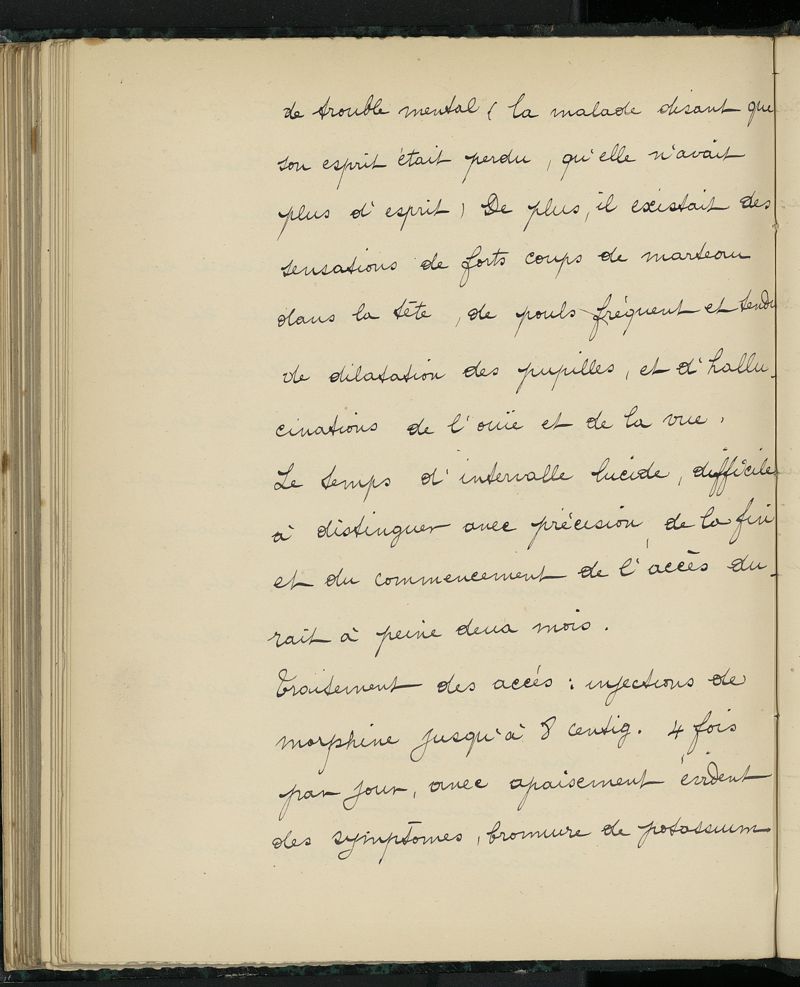 de trouble mental ( la malade disant que
son esprit était perdu , qu'elle n'avait
plus d'esprit ) De plus, il existait des
sensations de forts coups de marteau
dans la tête , de pouls fréquent et tendu
de dilatation des pupilles, et d'hallu-
cinations de l'ouïe et de la vue .
Le temps d'intervalle lucide, difficile
à distinguer avec précision, de la fin
et du commencement de l'accès du-
rait à peine deux mois .
Traitement des accés : injections de
morphine jusqu'à 8 centig. 4 fois
par jour, avec apaisement évident
des symptômes, bromure de potassium